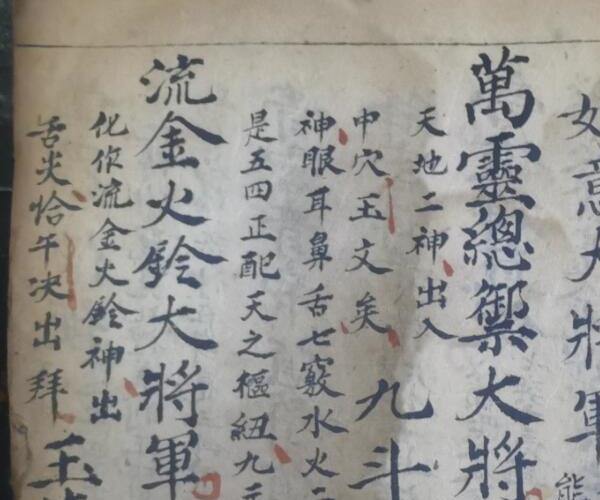 如意大將軍
萬靈總禦大將
天地二神出入
中穴玉文矣 九斗
神眼耳鼻舌七竅水火
是五四正配天之樞紐九
流金火鈴大將軍
化作流金火鈴神出
舌尖恰午决出拜 玉